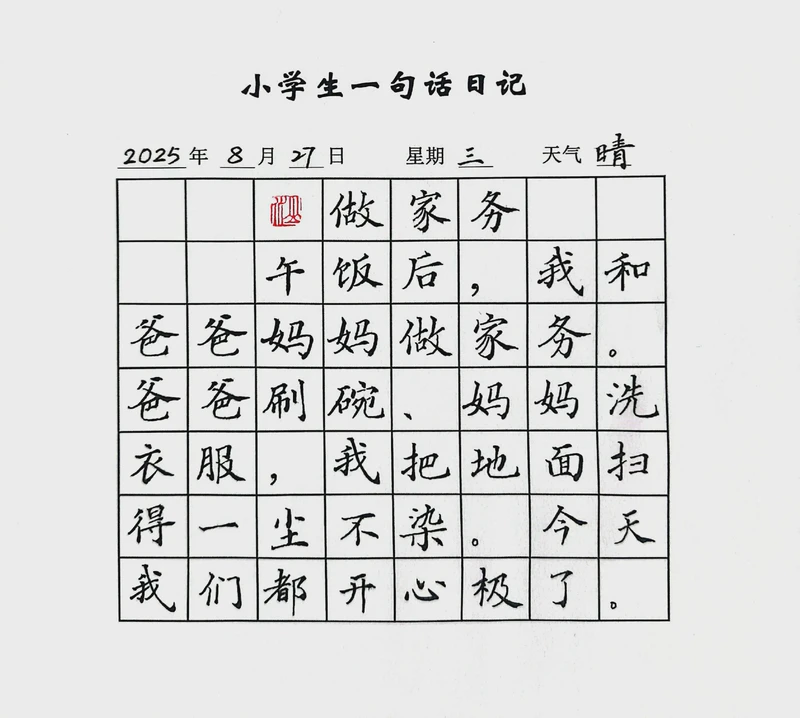 小学生一句话日记
2025年 8月 27日 星期 三 天气 晴
做家务
午饭后，我和
爸爸妈妈做家务。
爸爸刷碗、妈妈洗
衣服，我把地面扫
得一尘不染。今天
我们都开心极了。